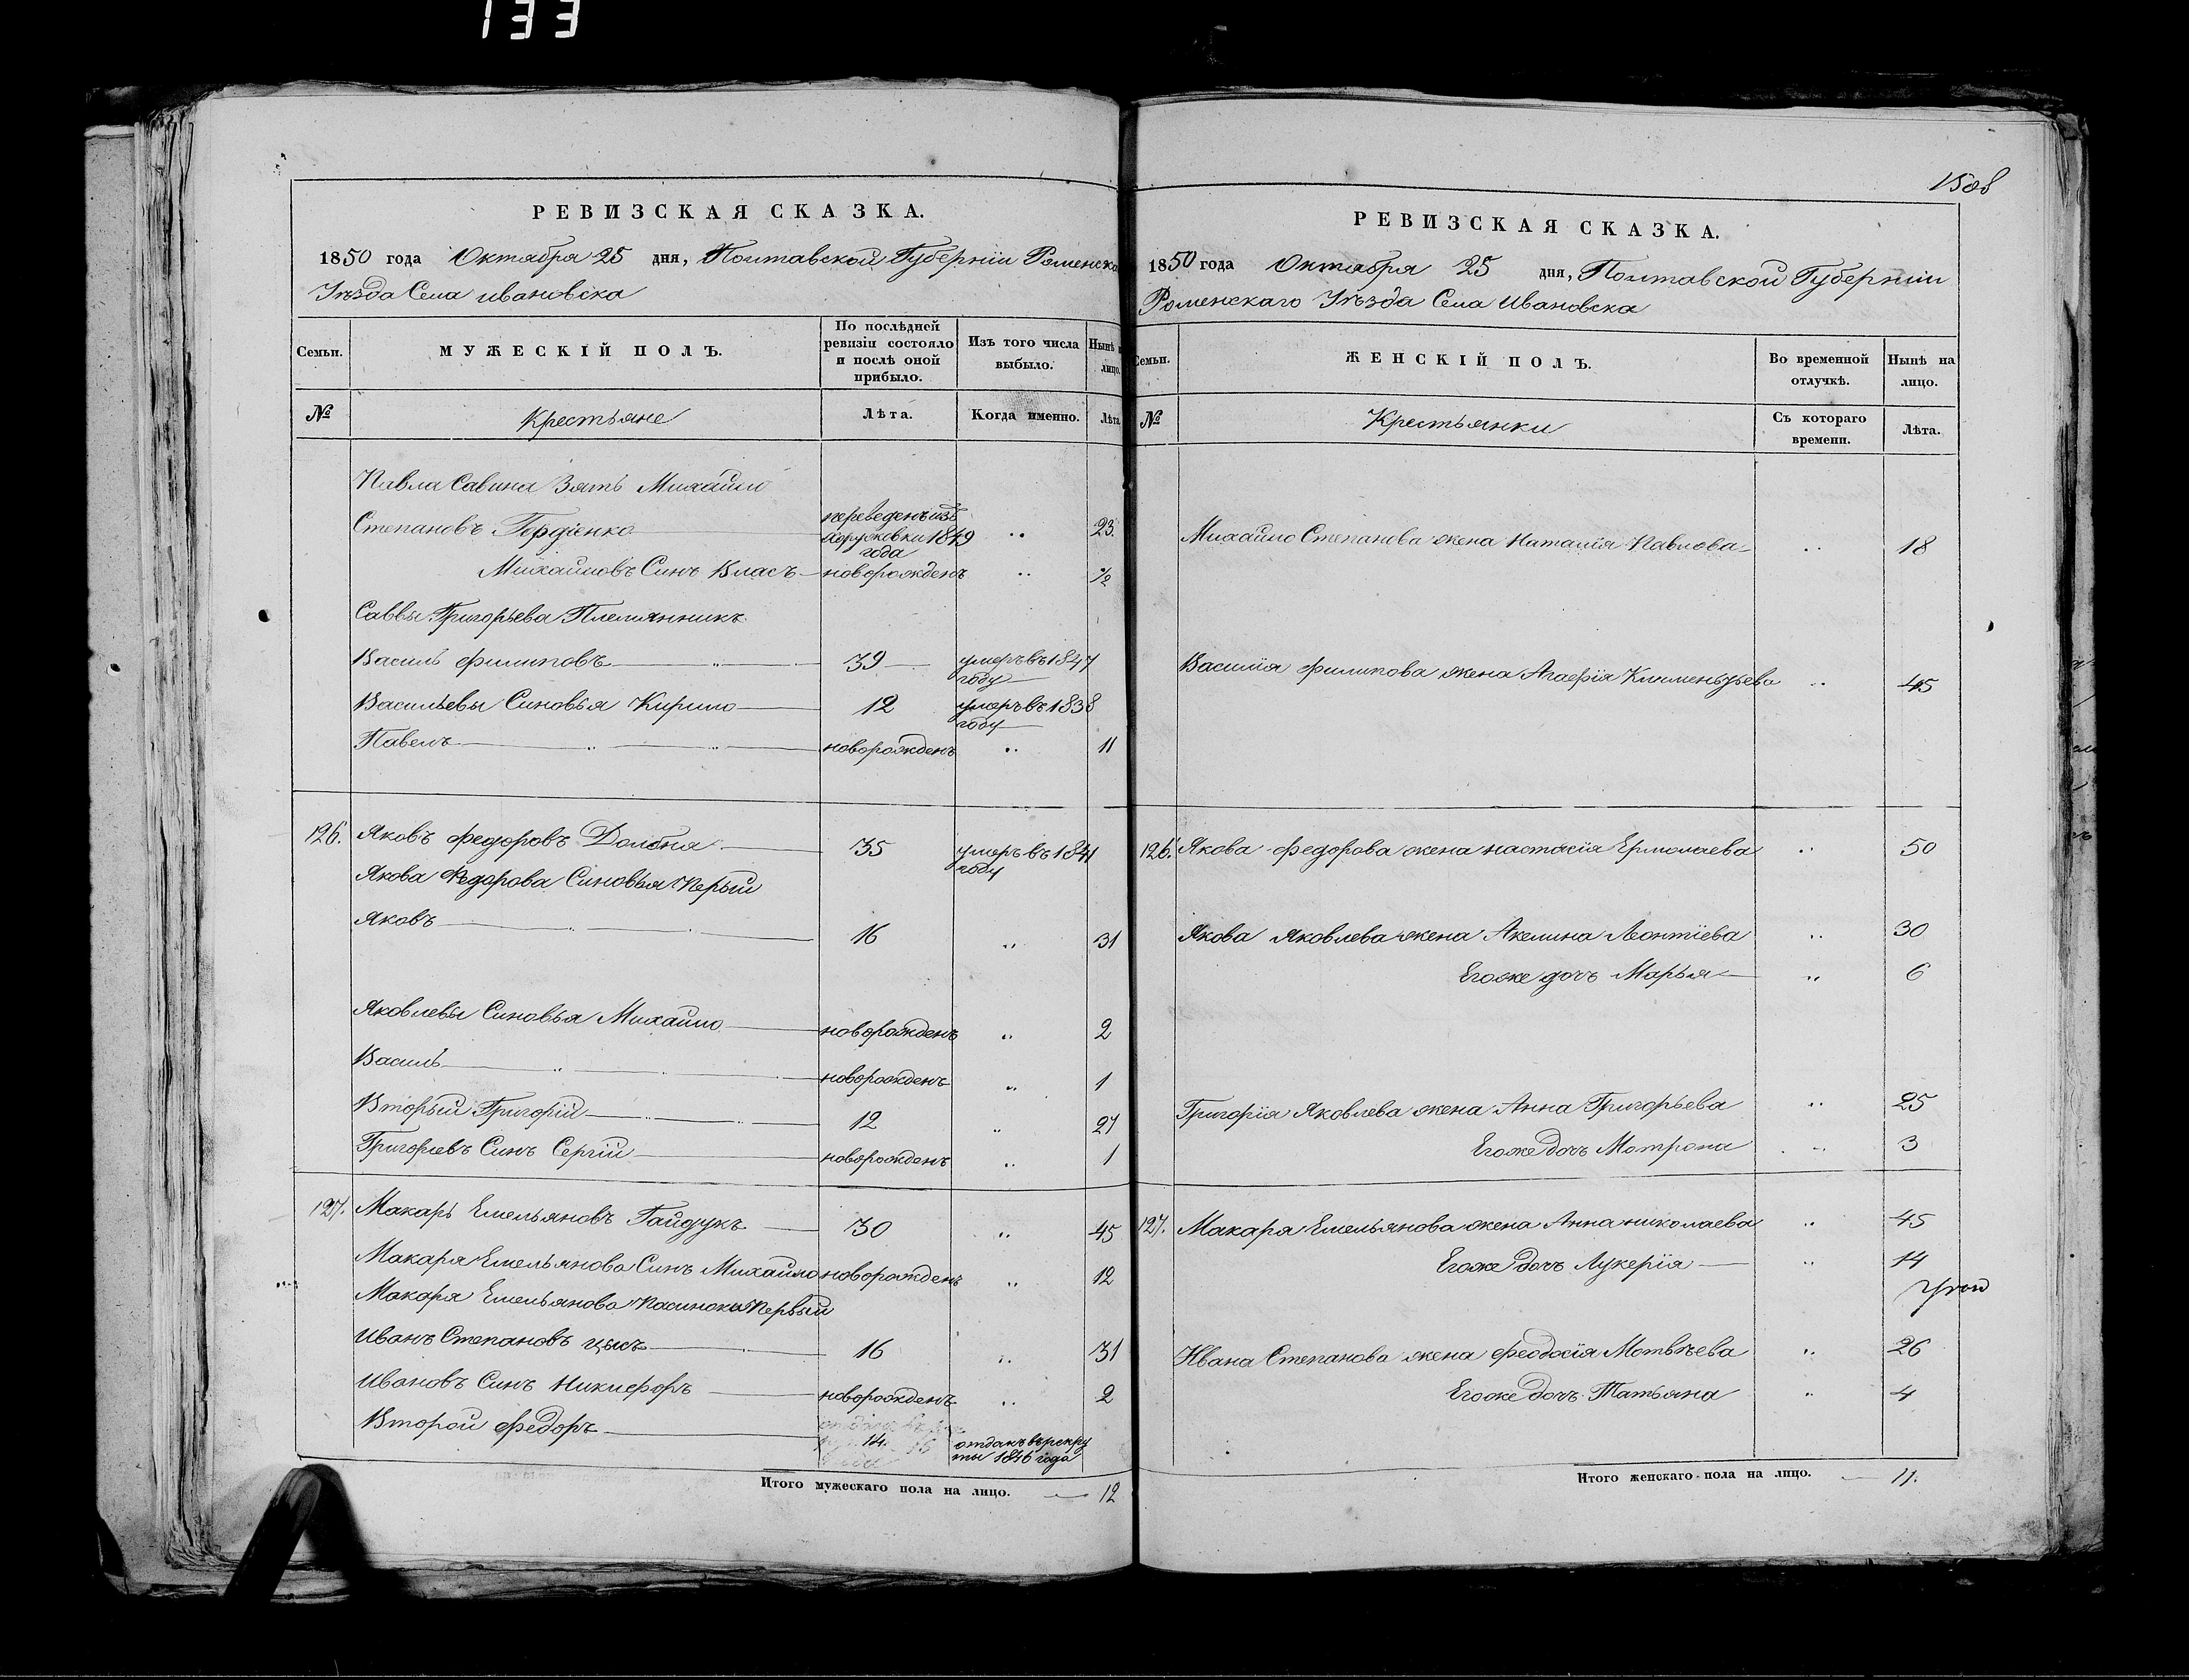 133
РЕВИЗСКАЯ СКАЗКА.
1850 года Октября 25 дня, Полтавской Губерніи Роменска
Уѣзда Села Ивановска
Семьи.
МУЖЕСКІЙ ПОЛЪ.
По послѣдней ревизіи состояло и послѣ оной прибыло.
Изъ того числа выбыло.
Нынѣ лицо.
№
Крестьяне
Лѣта.
Когда именно.
Лѣта
Павла Савина Зять Михайло
Степановъ Гордіенко переведенъ изъ 1849 года 23
Михайловъ Синъ Власъ новорожденъ ½
Саввы Григорьева Племянникъ
Василь Филиповъ 39 умеръ въ 1847 году
Васильевы Синовья Кирило 12 умеръ въ 1838 году
Павелъ новорожденъ 11
126. Яковъ Федоровъ Долбня 35 умеръ въ 1841 году
Якова Федорова Синовья Перый
Яковъ 16 31
Яковлевы Синовья Михайло новорожденъ 2
Василь новорожденъ 1
Вторый Григорій 12 27
Григориевъ Синъ Сергій новорожденъ 1
127. Макарь Емельяновъ Гайдукъ 30 45
Макаря Емельянова Синъ Михайло новорожденъ 12
Макаря Емельянова Пасински Первый
Иванъ Степановъ 16 31
Ивановъ Синъ Никифоръ новорожденъ 2
Второй Федоръ 14 отданъ върекру
ты 1846 года
Итого мужескаго пола на лицо. 12
РЕВИЗСКАЯ СКАЗКА.
1850 года Октября 25 дня, Полтавской Губерніи
Роменскаго Уѣзда Села Ивановска
Семьи.
ЖЕНСКІЙ ПОЛЪ.
Во временной отлучкѣ.
Нынѣ на лицо.
№
Крестьянки
Съ котораго времени.
Лѣта.
Михайло Степанова жена Наталія Павлова 18
Василія Филипова жена Агафія Клименьтьева 45
126. Якова Федорова жена Настасія Ермолаева 50
Якова Яковлева жена Акелина Леонтіева 30
Егоже дочъ Марья 6
Григорія Яковлева жена Анна Григорьева 25
Егоже дочъ Мотрона 3
127. Макаря Емельянова жена Анна Николаева 45
Егоже дочъ Лукерія 14
Ивана Степанова жена Феодосія Матвѣева 26
Егоже дочъ Татьяна 4
Итого женскаго пола на лицо. 11.